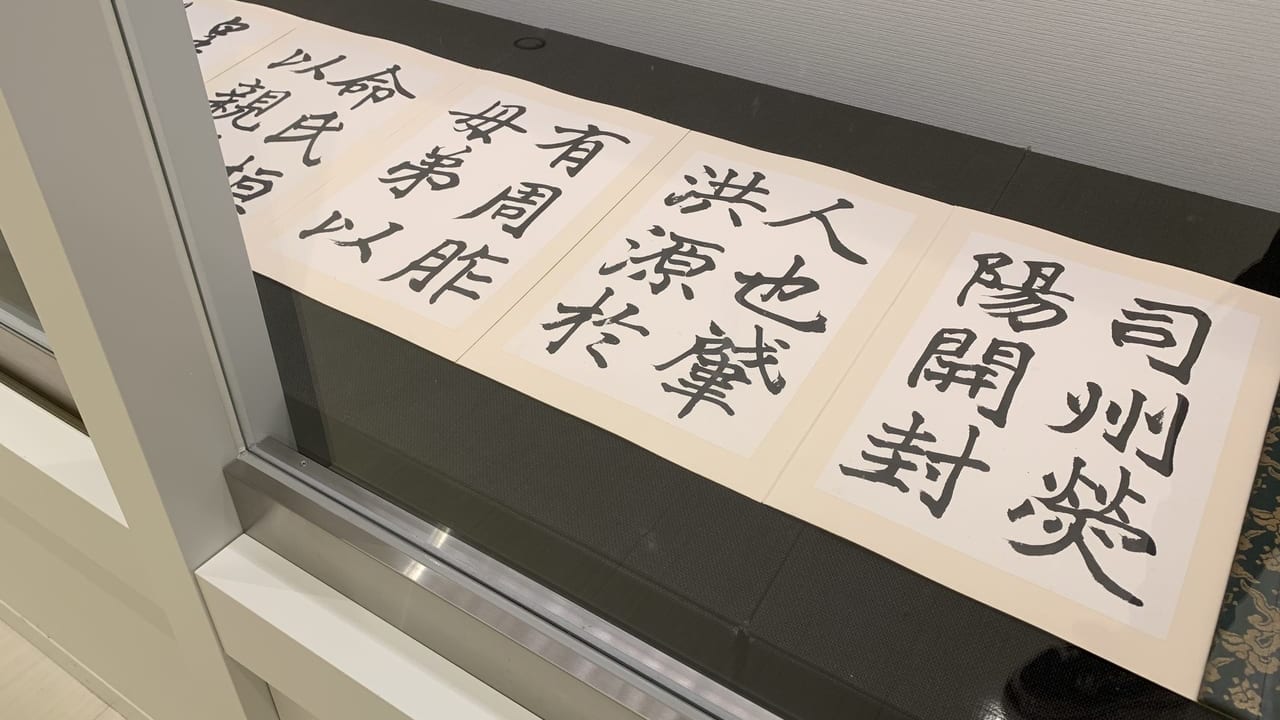 司州熒
陽開封
人也肇
洪源於
有周胙
母弟以
命氏桓
以親